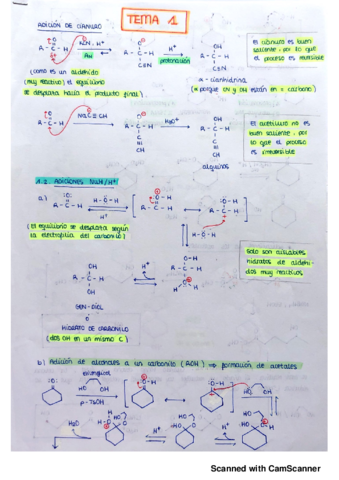 TEMA 1
ADICIÓN DE CIANURO
R - C - H
H⁺
R - C - H
H⁺
R - C - H
OH
protonación
C≡N
C≡N
El cianuro es buen
saliente, por lo que
el proceso es reversible
(como es un aldehído
(muy reactivo) el equilibrio
se desplaza hacia el producto final).
α - cianhidrina
(α porque CN y OH están en = carbono)
R - C - H
NaC≡CH
R - C - H
H₃O⁺
R - C - H
OH
C
C
CH
CH
alquinos
El acetiluro no es
buen saliente, por
lo que el proceso
es irreversible
1.2. ADICIONES NuH/H⁺
a)
R - C - H
H-Ö-H
R - C - H
R - C - H
(el equilibrio se desplaza según
la electrofilia del carbonilo)
H-Ö-H
Solo son aislables
hidratos de aldehí-
dos muy reactivos
OH
R - C - H
OH
H⁺
R - C - H
GEM-DIOL
o
HIDRATO DE CARBONILO
(dos OH en un mismo C)
b) Adición de alcoholes a un carbonilo (ROH) ⇒ formación de acetales
HO OH
p-TsOH
HO OH
H₂O
H⁺
H⁺
Scanned with CamScanner